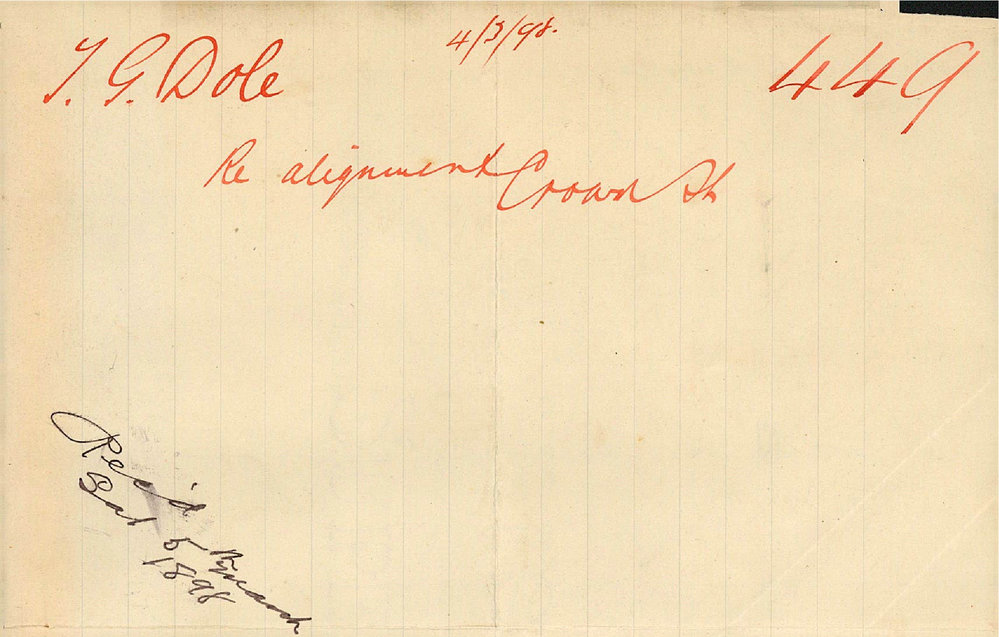 4/3/98.
T. G. Dole
449
Re alignment Crown St
Rec'd
Sat 5 March
1898